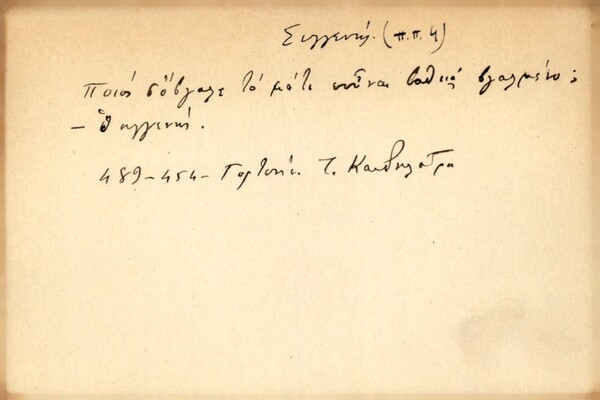 Συγγενής. (π.π. 4)
Ποιός σὄβγαλε τό μάτι ποὖναι βαθειά βγαλμένο;
– Ὁ συγγενής.
489–454– Γορτυνία. Τ. Κανδηλώρα